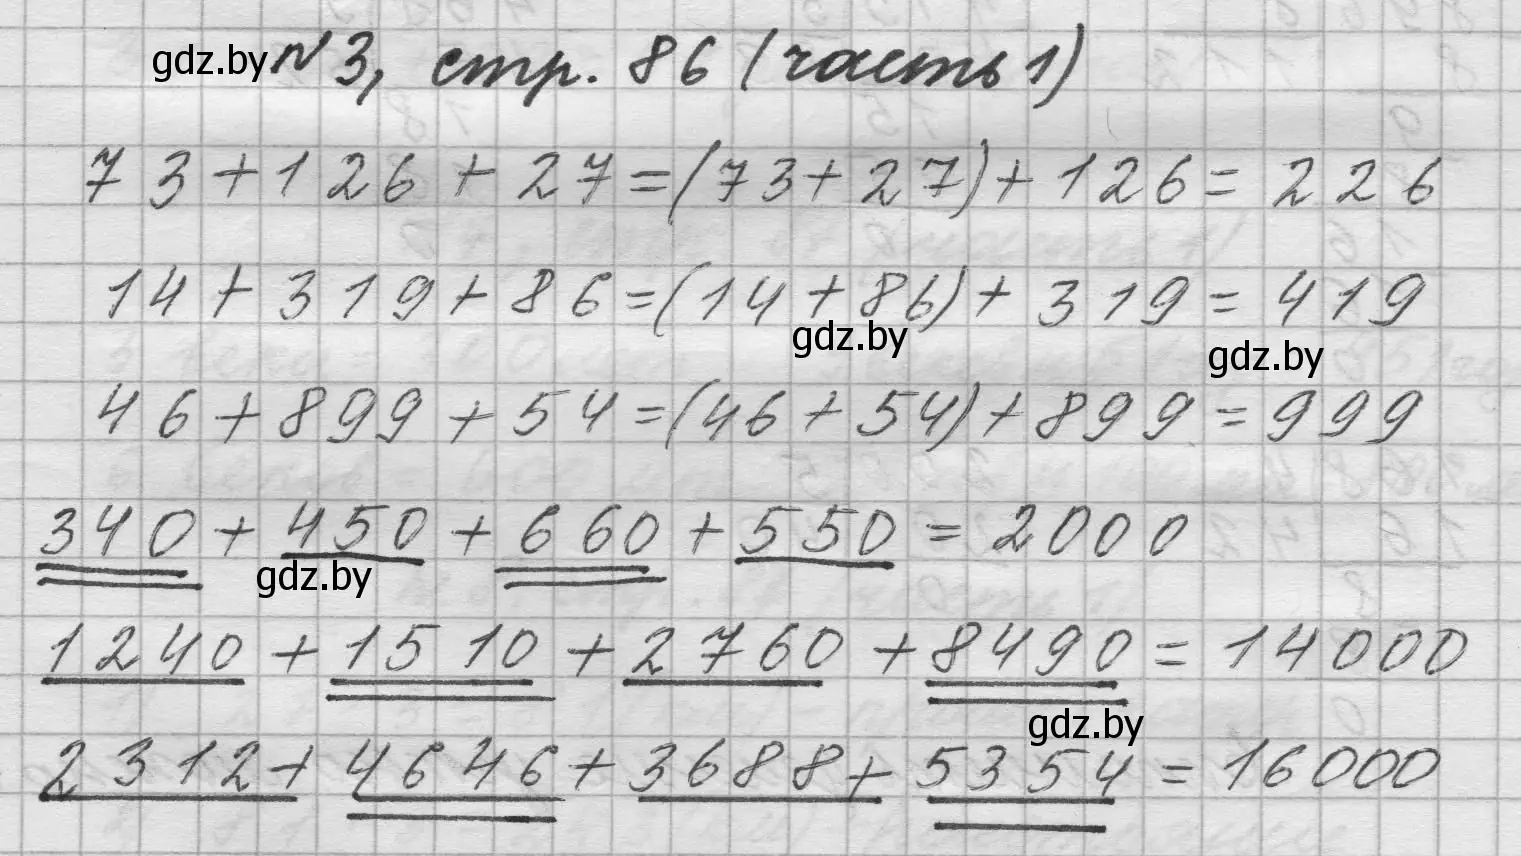 gdz.by № 3, стр. 86 (часть 1)
73+126+27=(73+27)+126=226
14+319+86=(14+86)+319=419
gdz.by gdz.by
46+899+54=(46+54)+899=999
340+450+660+550=2000
gdz.by
1240+1510+2760+8490=14000
gdz.by
2312+4646+3688+5354=16000